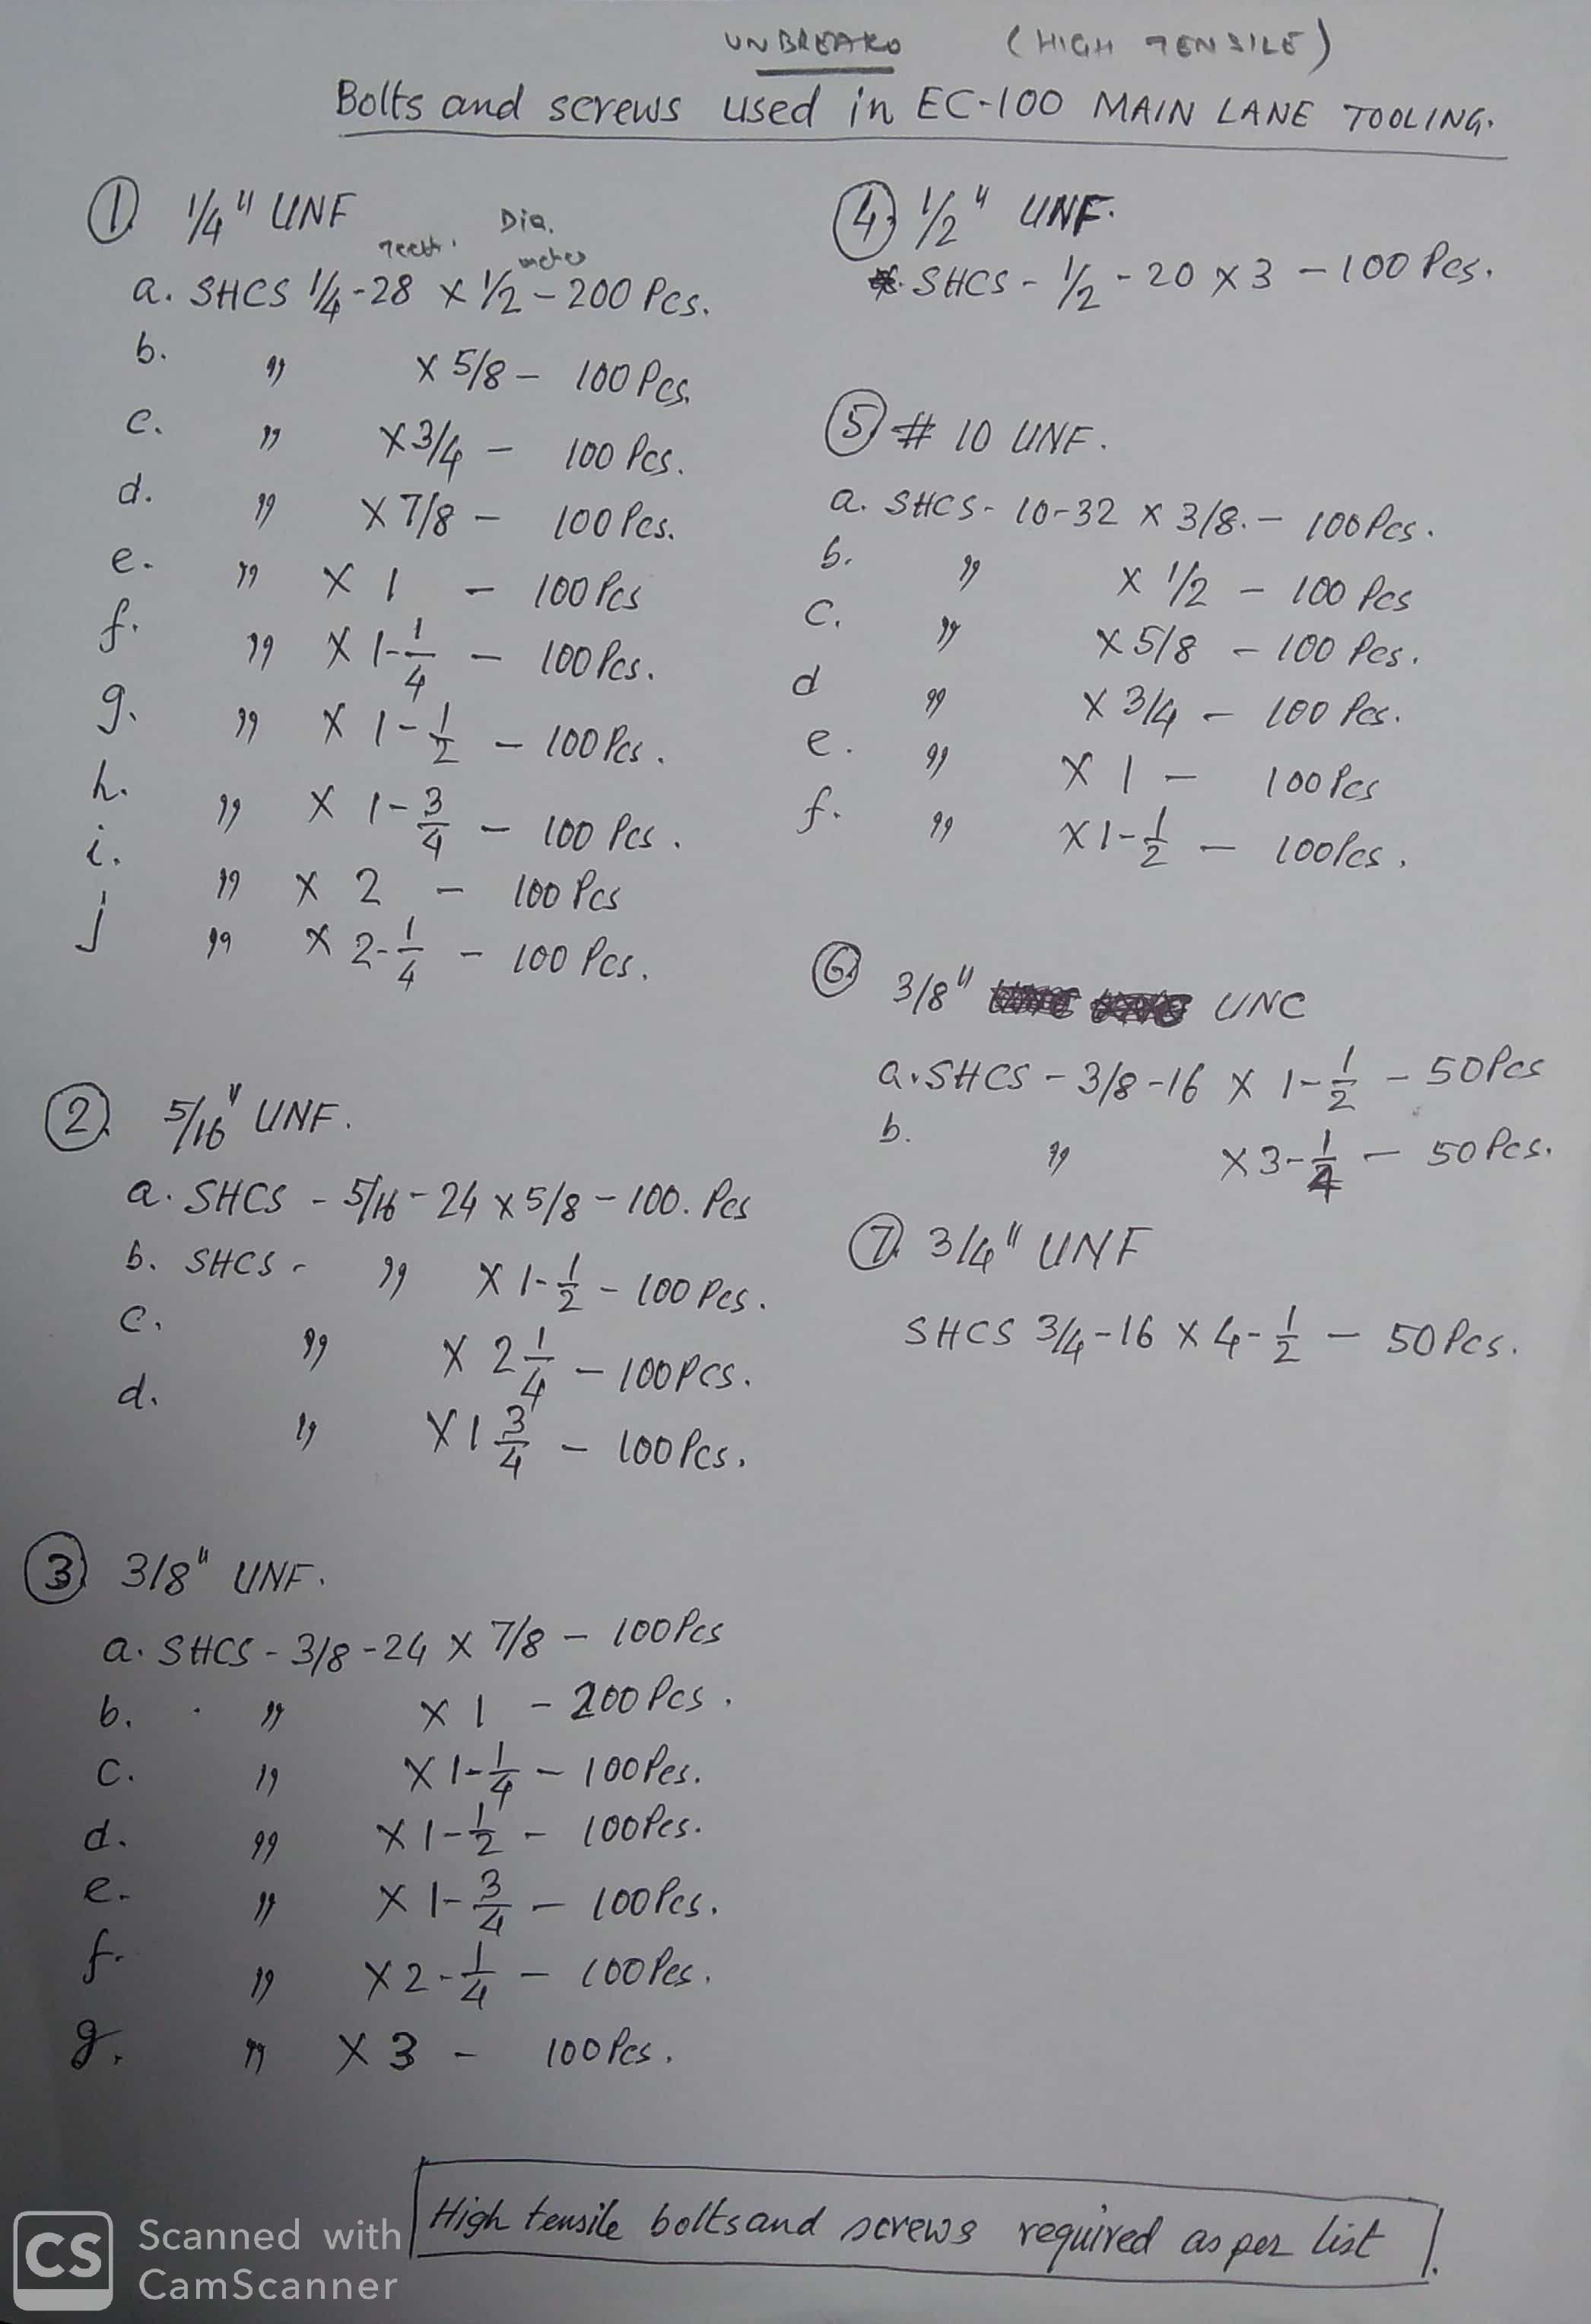 UNBREAKO (HIGH TENSILE)
Bolts and screws used in EC-100 MAIN LANE TOOLING.
1. 1/4" UNF
Teeth. Dia.
inches
a. SHCS 1/4-28 x 1/2 - 200 Pcs.
b. " x 5/8 - 100 Pcs.
c. " x 3/4 - 100 Pcs.
d. " x 7/8 - 100 Pcs.
e. " x 1 - 100 Pcs
f. " x 1-1/4 - 100 Pcs.
g. " x 1-1/2 - 100 Pcs.
h. " x 1-3/4 - 100 Pcs.
i. " x 2 - 100 Pcs
j " x 2-1/4 - 100 Pcs.
2. 5/16" UNF.
a. SHCS - 5/16 - 24 x 5/8 - 100. Pcs
b. SHCS - " x 1-1/2 - 100 Pcs.
c. " x 2 1/4 - 100 PCS.
d. " x 1 3/4 - 100 Pcs.
3. 3/8" UNF.
a. SHCS - 3/8 - 24 x 7/8 - 100 Pcs
b. " x 1 - 200 Pcs.
c. " x 1-1/4 - 100 Pcs.
d. " x 1-1/2 - 100 Pcs.
e. " x 1-3/4 - 100 Pcs.
f. " x 2-1/4 - 100 Pcs.
g. " x 3 - 100 Pcs.
4. 1/2" UNF.
SHCS - 1/2 - 20 x 3 - 100 Pcs.
5. # 10 UNF.
a. SHCS - 10-32 x 3/8. - 100 Pcs.
b. " x 1/2 - 100 Pcs
c. " x 5/8 - 100 Pcs.
d " x 3/4 - 100 Pcs.
e. " x 1 - 100 Pcs
f. " x 1-1/2 - 100 Pcs.
6. 3/8" UNC
a. SHCS - 3/8-16 x 1-1/2 - 50 Pcs
b. " x 3-1/4 - 50 Pcs.
7. 3/4" UNF
SHCS 3/4-16 x 4-1/2 - 50 Pcs.
High tensile bolts and screws required as per list.
CS Scanned with
CamScanner